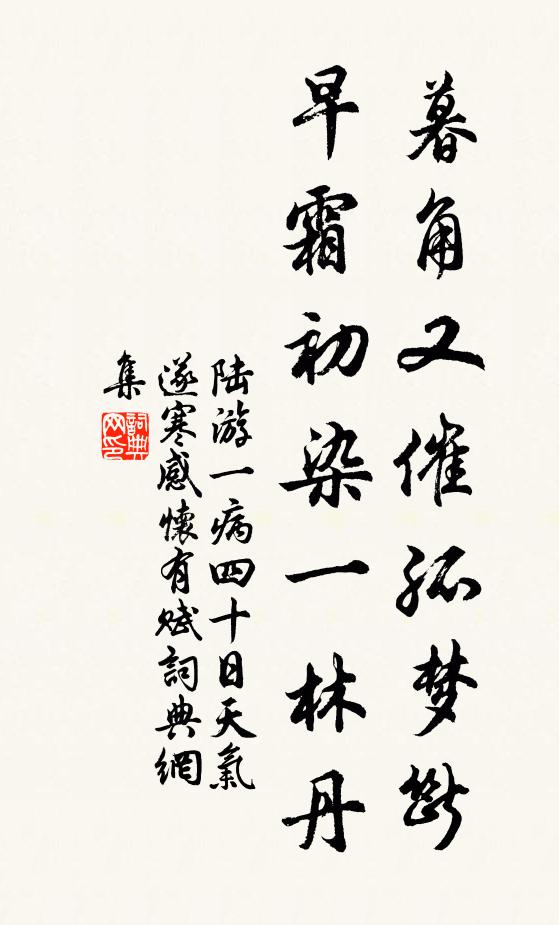 暮角又催孤梦斷
早霜初染一林丹
陆游一病四十日天氣
遂寒感懷有赋詞典網
集
詞典
网印